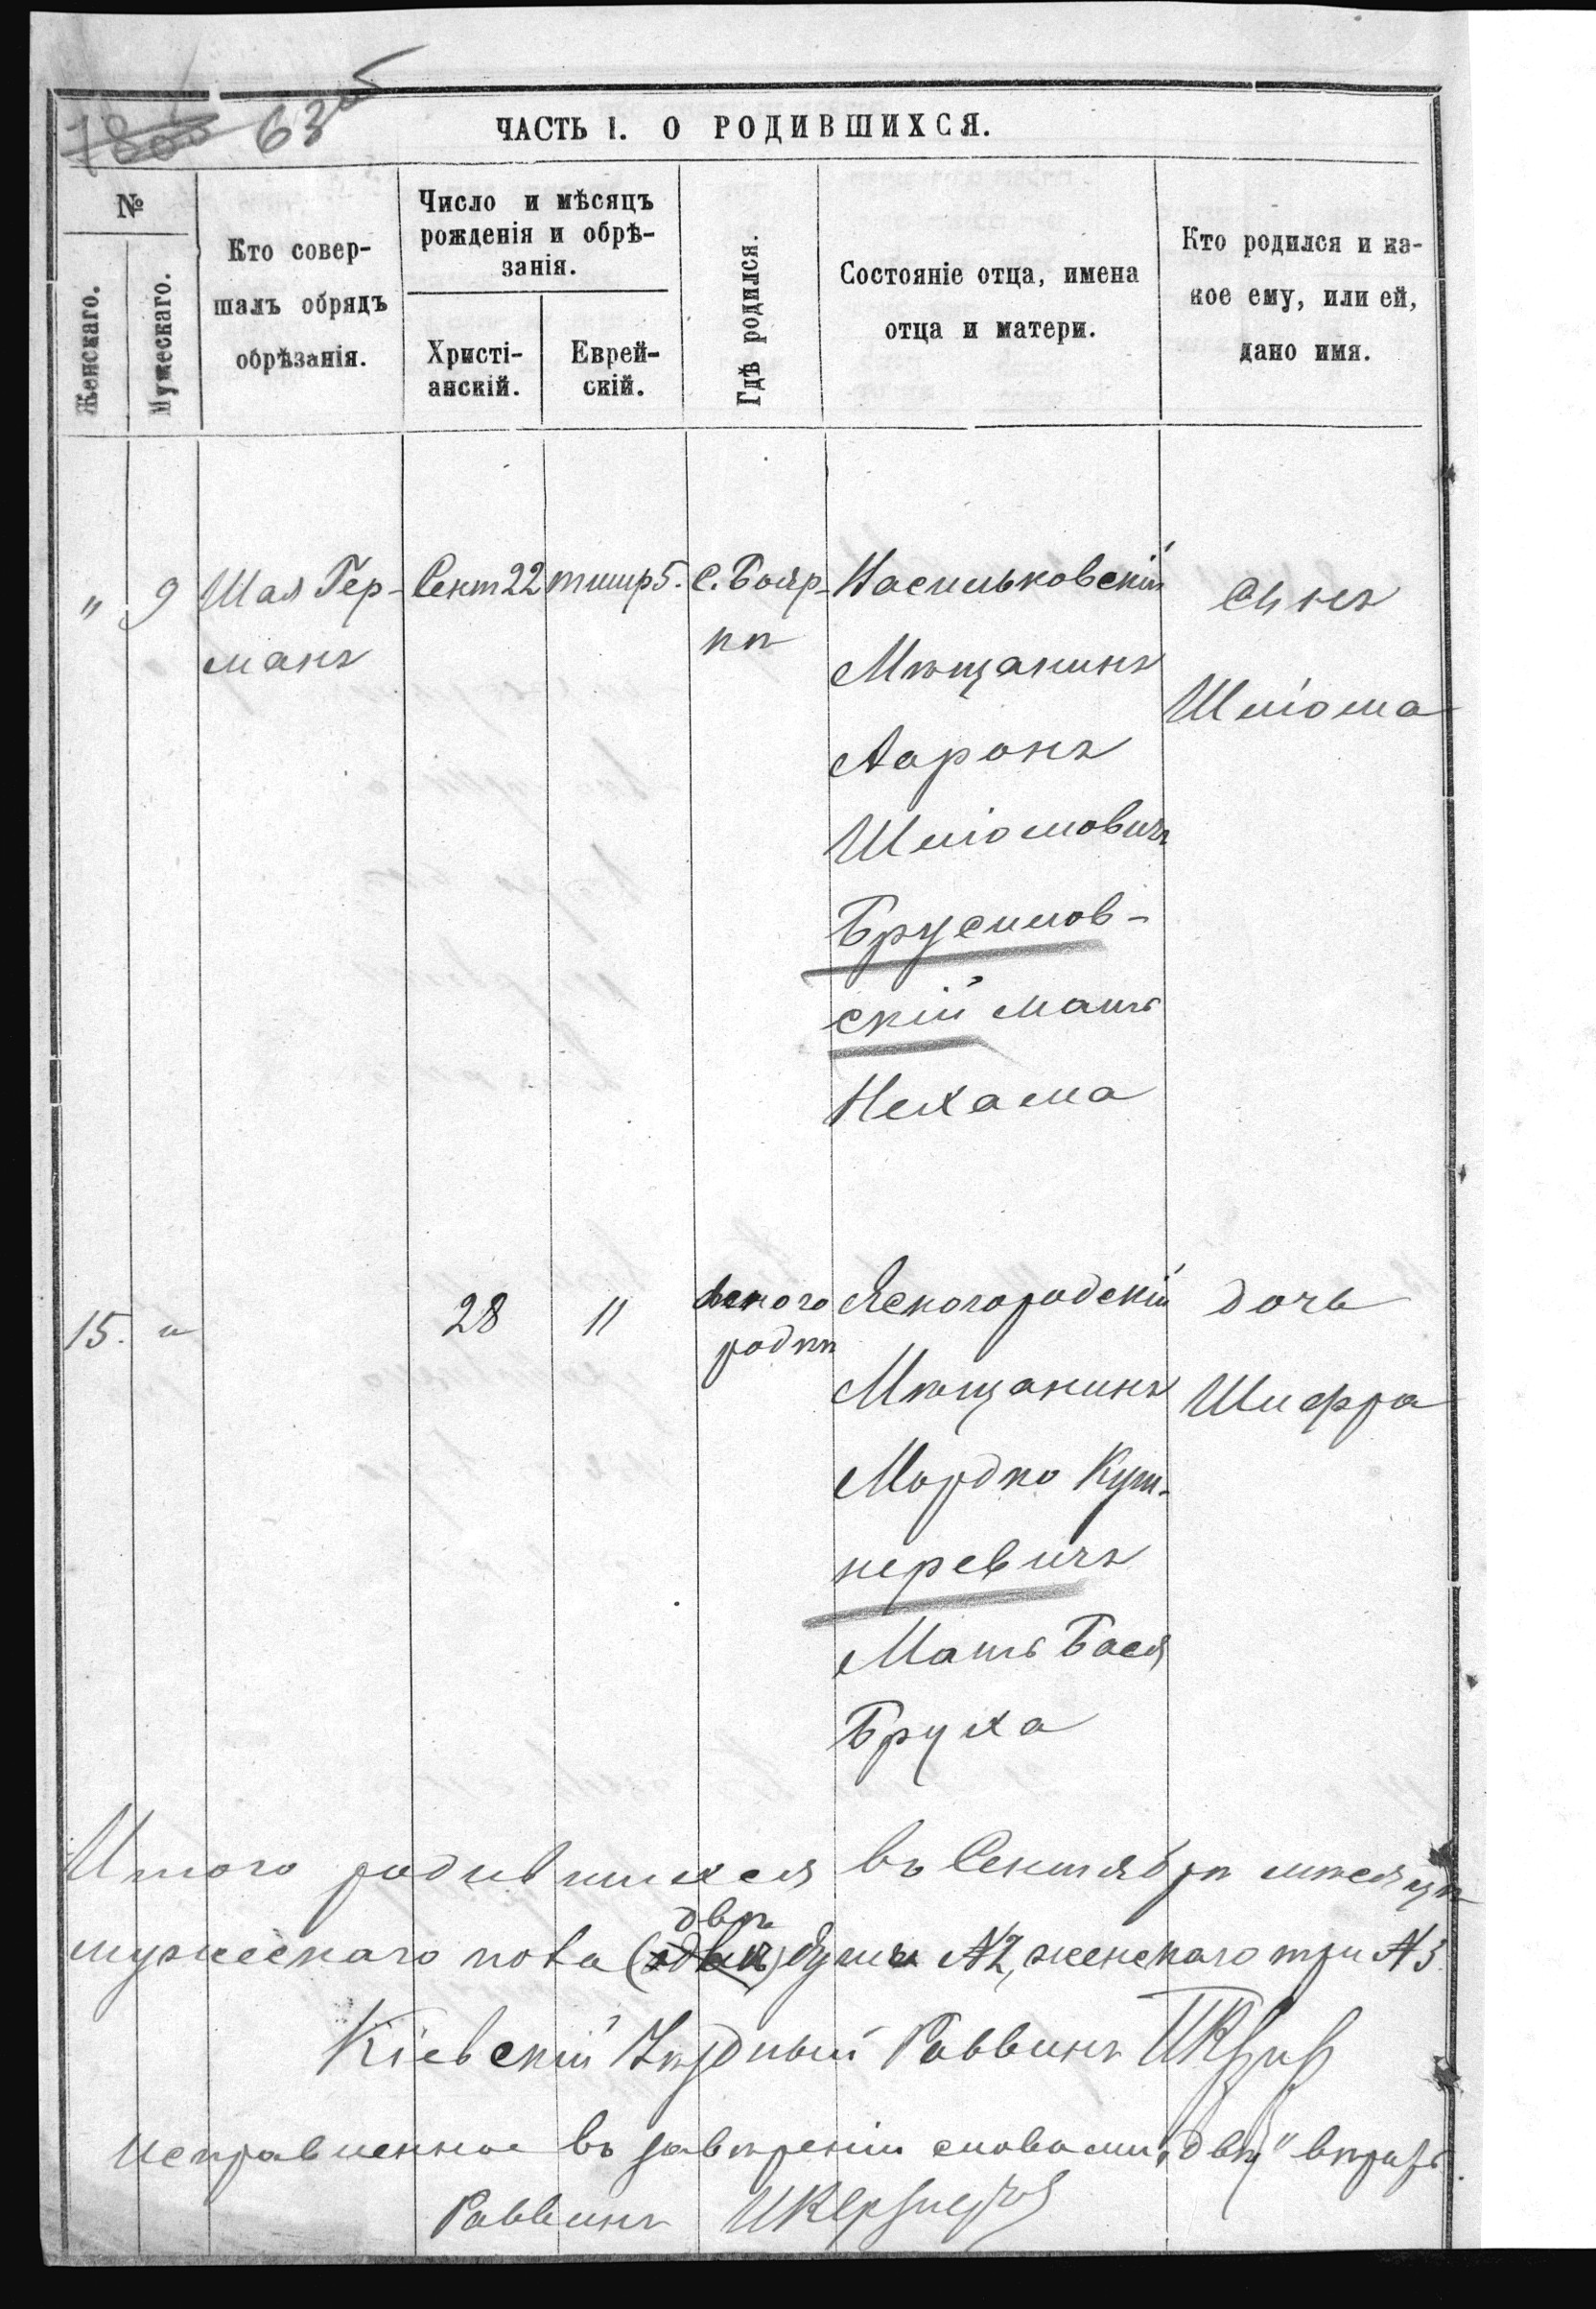 63 об
ЧАСТЬ I. О РОДИВШИХСЯ.
№
Женскаго.
Мужескаго.
Кто совер-
шалъ обрядъ
обрѣзанія.
Число и мѣсяцъ
рожденія и обрѣ-
занія.
Христі-
анскій.
Еврей-
скій.
Гдѣ родился.
Состояніе отца, имена
отца и матери.
Кто родился и ка-
кое ему, или ей,
дано имя.
" 9 Шая Гер-
манъ
Сент 22
тишр 5.
с. Бояр-
кѣ
Васильковскій
Мѣщанинъ
Ааронъ
Шліомовичъ
Брусилов-
скій мать
Нехама
Сынъ
Шліома
15. "
28
11
Ясного
родкѣ
Ясногородскій
Мѣщанинъ
Мордко Куш-
неревичъ
Мать Бася
Бруха
дочь
Шифра
Итого родившихся въ Сентябрѣ мѣсяцѣ
двѣ
мужескаго пола () души №2, женскаго три №3.
Кіевскій Уѣздный Раввинъ
Исправленное въ завѣреніи словами „двѣ" вѣрить.
Раввинъ